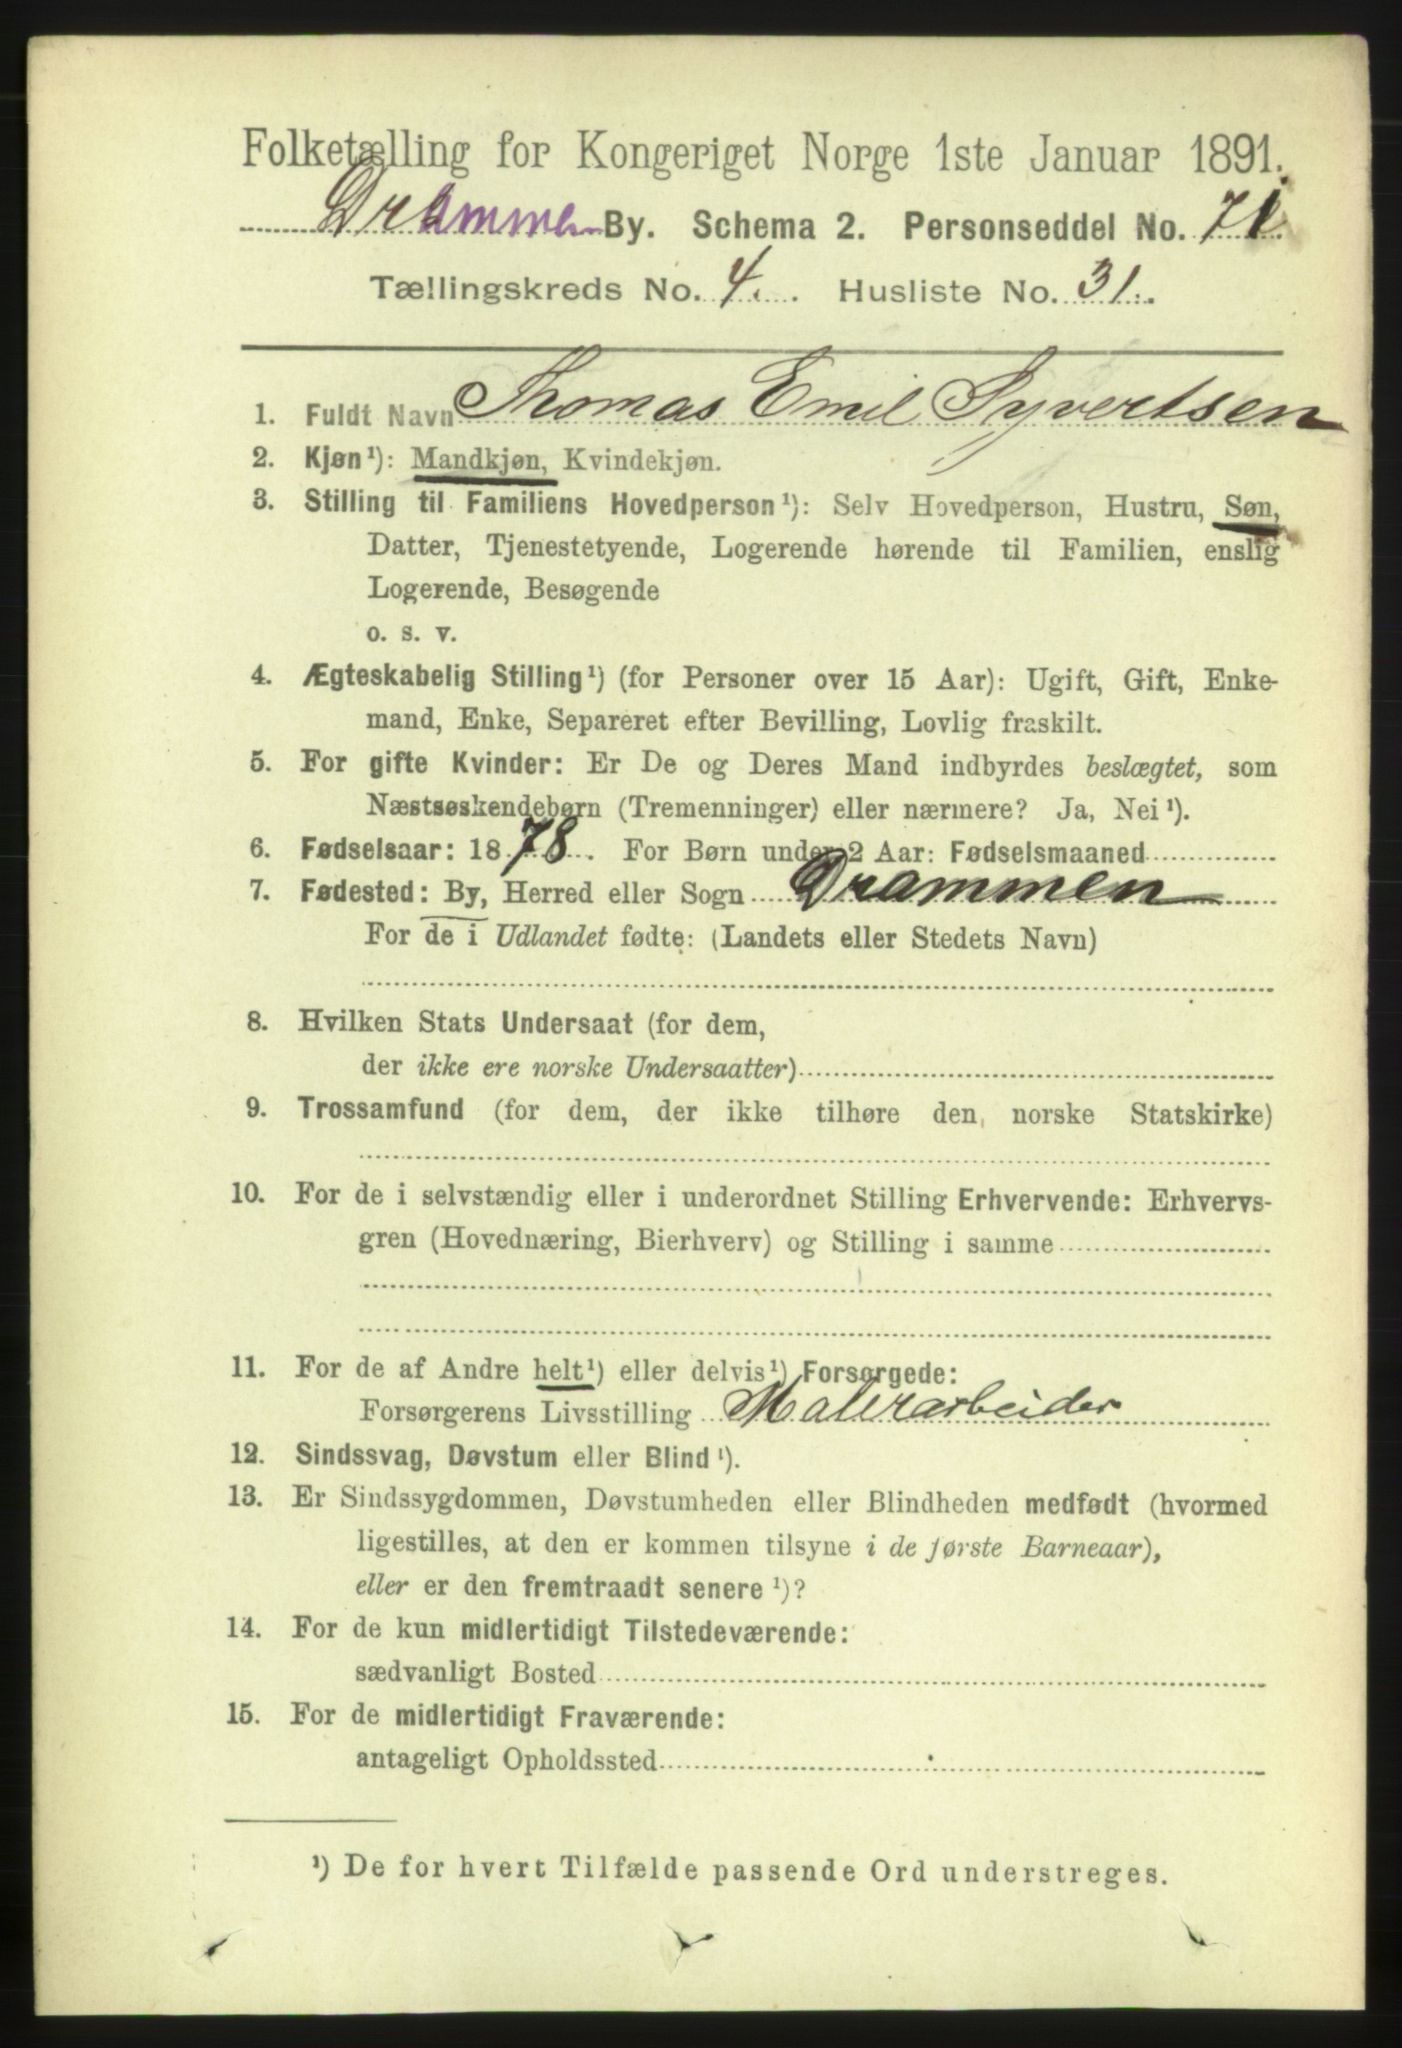 Folketælling for Kongeriget Norge 1ste Januar 1891.
Drammen By. Schema 2. Personseddel No. 71.
Tællingskreds No. 4. Husliste No. 31.
1. Fuldt Navn Thomas Emil Syvertsen
2. Kjøn¹): Mandkjøn, Kvindekjøn.
3. Stilling til Familiens Hovedperson¹): Selv Hovedperson, Hustru, Søn,
Datter, Tjenestetyende, Logerende hørende til Familien, enslig
Logerende, Besøgende
o. s. v.
4. Ægteskabelig Stilling¹) (for Personer over 15 Aar): Ugift, Gift, Enke-
mand, Enke, Separeret efter Bevilling, Lovlig fraskilt.
5. For gifte Kvinder: Er De og Deres Mand indbyrdes beslægtet, som
Næstsøskendebørn (Tremenninger) eller nærmere? Ja, Nei¹).
6. Fødselsaar: 1878. For Børn under 2 Aar: Fødselsmaaned
7. Fødested: By, Herred eller Sogn Drammen
For de i Udlandet fødte: (Landets eller Stedets Navn)
8. Hvilken Stats Undersaat (for dem,
der ikke ere norske Undersaatter)
9. Trossamfund (for dem, der ikke tilhøre den norske Statskirke)
10. For de i selvstændig eller i underordnet Stilling Erhvervende: Erhvervs-
gren (Hovednæring, Bierhverv) og Stilling i samme
11. For de af Andre helt¹) eller delvis¹) Forsørgede:
Forsørgerens Livsstilling Malerarbeider
12. Sindssvag, Døvstum eller Blind¹).
13. Er Sindssygdommen, Døvstumheden eller Blindheden medfødt (hvormed
ligestilles, at den er kommen tilsyne i de første Barneaar),
eller er den fremtraadt senere¹)?
14. For de kun midlertidigt Tilstedeværende:
sædvanligt Bosted
15. For de midlertidigt Fraværende:
antageligt Opholdssted
¹) De for hvert Tilfælde passende Ord understreges.